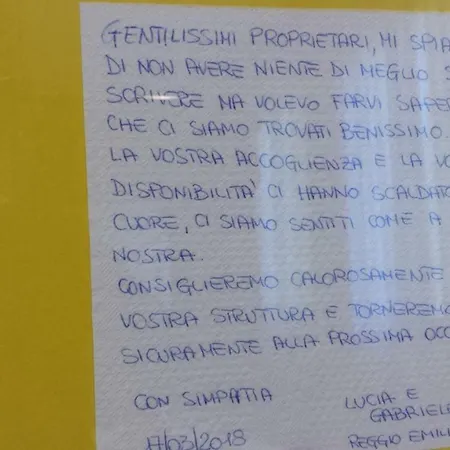 GENTILISSIMI PROPRIETARI, MI SPIA
DI NON AVERE NIENTE DI MEGLIO S
SCRIVERE MA VOLEVO FARVI SAPER
CHE CI SIAMO TROVATI BENISSIMO.
LA VOSTRA ACCOGLIENZA E LA VO
DISPONIBILITA' CI HANNO SCALDATO
CUORE, CI SIAMO SENTITI COME A
NOSTRA.
CONSIGLIEREMO CALOROSAMENTE
VOSTRA STRUTTURA E TORNEREMO
SICURAMENTE ALLA PROSSIMA OCC
CON SIMPATIA
LUCIA E
GABRIELE
/03/2018
REGGIO EMILI